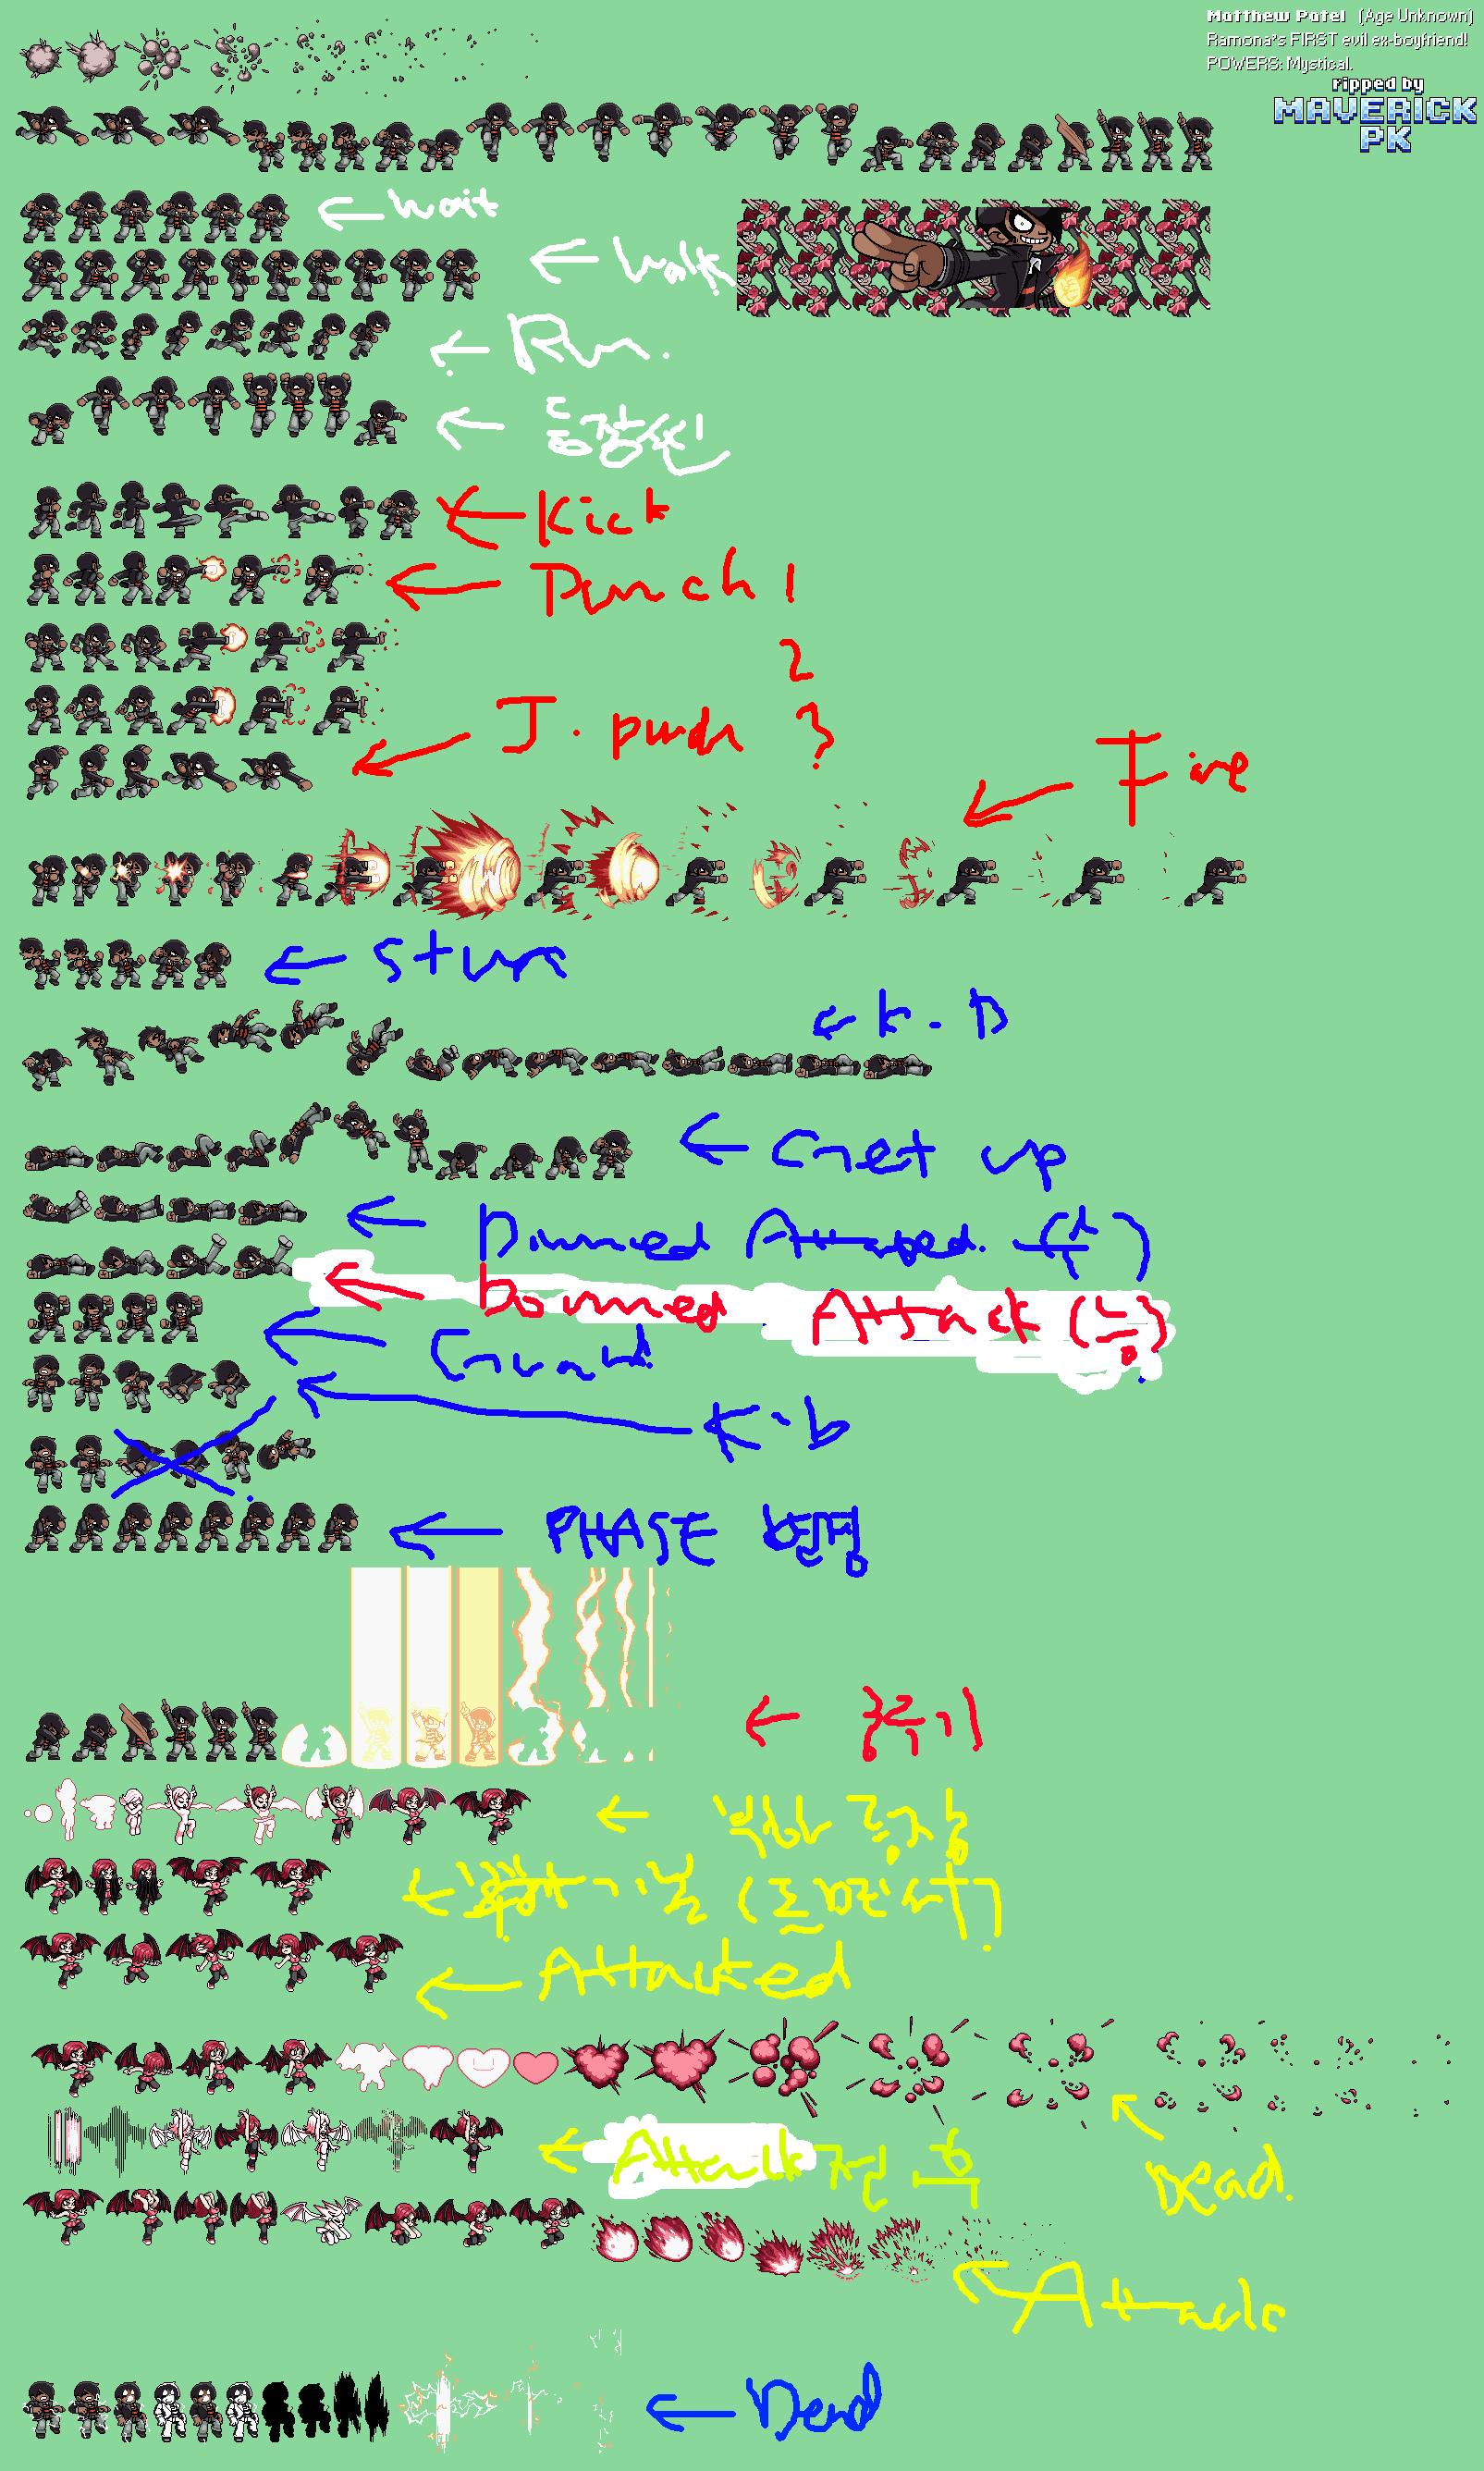 Matthew Patel (Age Unknown)
Ramona's FIRST evil ex-boyfriend!
POWERS: Mystical.
ripped by
MAVERICK
PK
← wait
← Walk
← Run.
← 등장씬
← Kick
← Punch 1
2
← J. punch 3
← Fire
← Stun
← K.D
← Get up
← Downed Attacked.
← Downed Attack
← Guard
← K.b
← PHASE 변경
←
← 박쥐 등장
←
← Attacked
← Dead.
← Attack
← Attack
← Dead